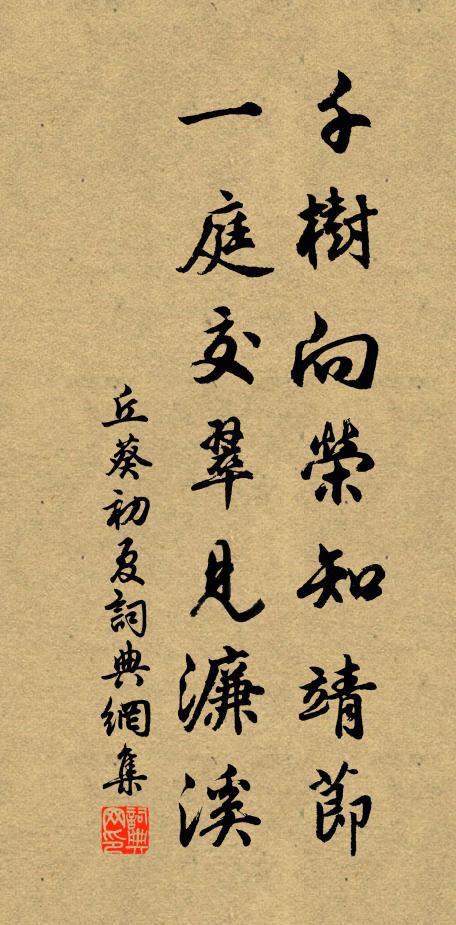 千樹向榮知靖節
一庭交翠見濂溪
丘葵初夏詞典網集
詞典网印